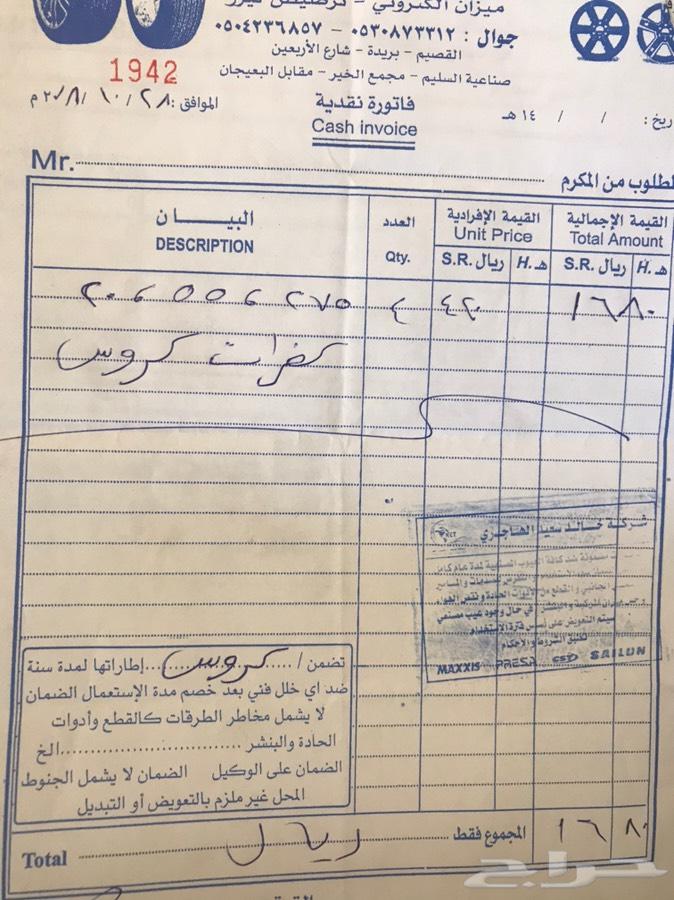 ميزان الكتروني - ترصيص ليزر
جوال : ٠٥٣٠٨٧٣٣١٢ - ٠٥٠٤٢٣٦٨٥٧
القصيم - بريدة - شارع الأربعين
صناعية السليم - مجمع الخير - مقابل البعيجان
1942
فاتورة نقدية
Cash invoice
الموافق : ٢٨ / ١٠ / ٢٠١٨ م
ريخ : / / ١٤ هـ
Mr.
لطلوب من المكرم
البيــــان
DESCRIPTION
العدد
Qty.
القيمة الإفرادية
Unit Price
القيمة الإجمالية
Total Amount
S.R. ريال
H. هـ
S.R. ريال
H. هـ
٤
٤٢٠
١٦٨٠
كفرات كروس
شركة خالد سعيد الهاجري
سيتم التعويض على أسس فترة الاستخدام
تطبق الشروط والأحكام
MAXXIS PRESA GSD SAILUN
تضمن / كروس إطاراتها لمدة سنة
ضد اي خلل فني بعد خصم مدة الإستعمال الضمان
لا يشمل مخاطر الطرقات كالقطع وأدوات
الحادة والبنشر ........ الخ
الضمان على الوكيل الضمان لا يشمل الجنوط
المحل غير ملزم بالتعويض أو التبديل
Total
ريال
المجموع فقط
١٦٨٠
حراج